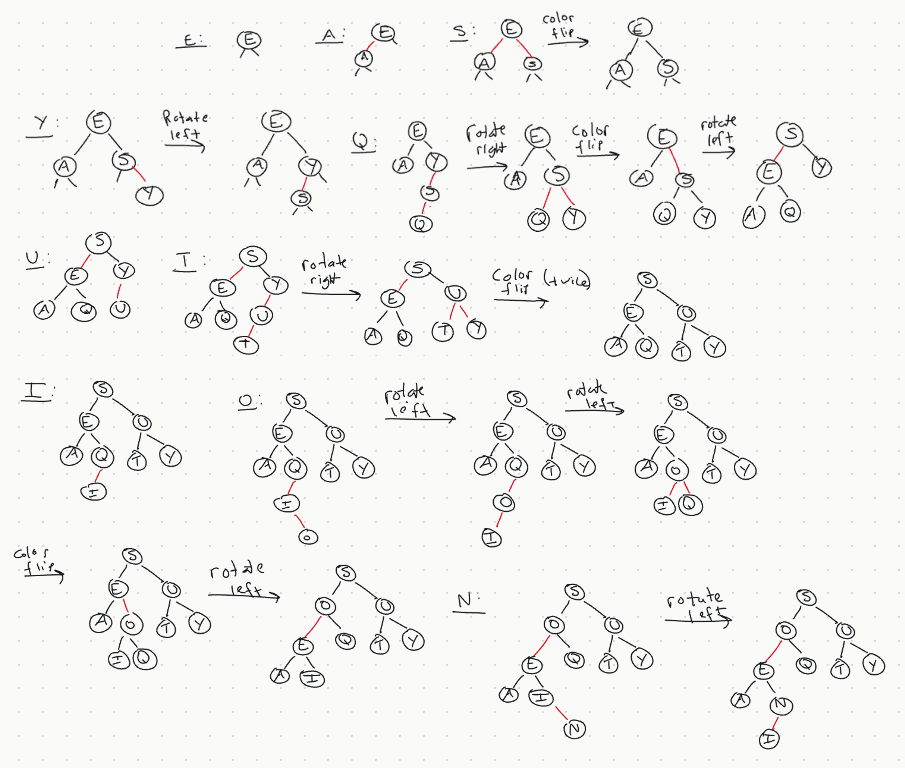 E: E
A: E
A
S: E
A S
color
flip
E
A S
Y: E
A S
Y
Rotate
left
E
A Y
S
Q: E
A Y
S
Q
rotate
right
E
A S
Q Y
color
flip
E
A S
Q Y
rotate
left
S
E Y
A Q
U: S
E Y
A Q U
T: S
E Y
A Q U
T
rotate
right
S
E U
A Q T Y
Color
flip (twice)
S
E U
A Q T Y
I: S
E U
A Q T Y
I
O: S
E U
A Q T Y
I
O
rotate
left
S
E U
A Q T Y
O
I
rotate
left
S
E U
A O T Y
I Q
color
flip
S
E U
A O T Y
I Q
rotate
left
S
O U
E Q T Y
A I
N: S
O U
E Q T Y
A I
N
rotate
left
S
O U
E Q T Y
A N
I